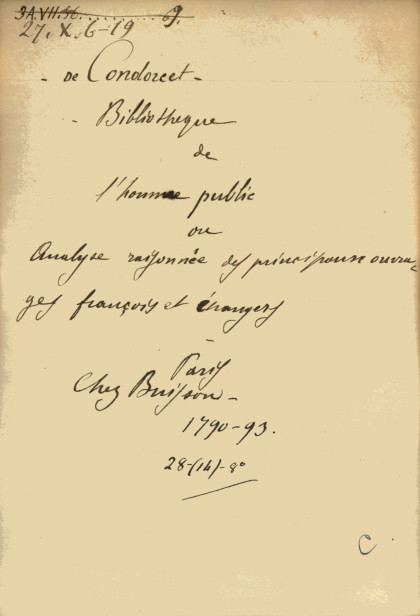 3A.VII.36. 69.
27. X. 6-19
- De Condorcet -
- Bibliotheque
de
l'homme public
ou
Analyse raisonnée des principaux ouvra-
ges françois et étrangers
-
Paris
Chez Buisson -
1790-93.
28-(14)-8º
C